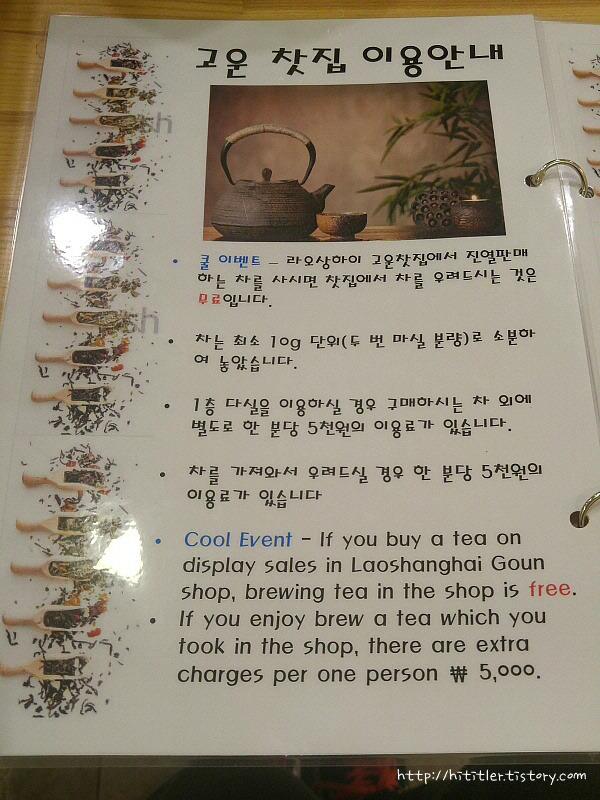 고운 찻집 이용안내
쿨 이벤트 – 라오상하이 고운찻집에서 진열판매
하는 차를 사시면 찻집에서 차를 우려드시는 것은
무료입니다.
차는 최소 10g 단위(두 번 마실 분량)로 소분하
여 놓았습니다.
1층 다실을 이용하실 경우 구매하시는 차 외에
별도로 한 분당 5천원의 이용료가 있습니다.
차를 가져와서 우려드실 경우 한 분당 5천원의
이용료가 있습니다
Cool Event – If you buy a tea on
display sales in Laoshanghai Goun
shop, brewing tea in the shop is free.
If you enjoy brew a tea which you
took in the shop, there are extra
charges per one person ₩ 5,000.
http://hititler.tistory.com/